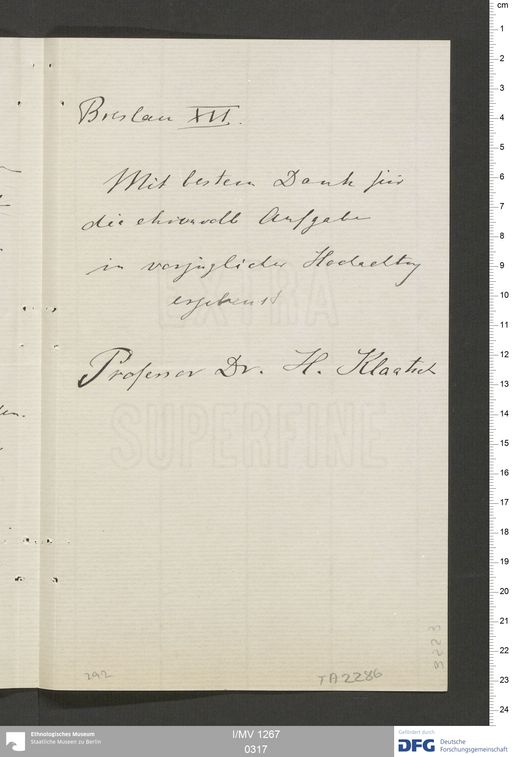 Breslau XVI.
Mit bestem Dank für
die ehrenvolle Aufgabe
in vorzüglicher Hochachtg
ergebenst
Professor Dr. H. Klaatsch
EXTRA
SUPERFINE
292
TA2286
cm
1
2
3
4
5
6
7
8
9
10
11
12
13
14
15
16
17
18
19
20
21
22
23
24
Ethnologisches Museum
Staatliche Museen zu Berlin
I/MV 1267
0317
Gefördert durch
DFG
Deutsche
Forschungsgemeinschaft